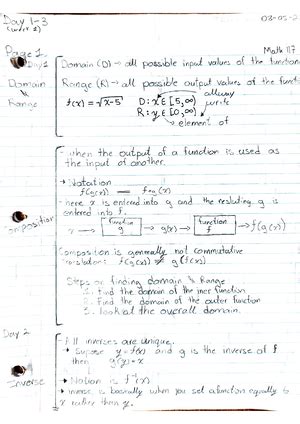 Day 1-3
Page 1
Math 117
Day 1
Domain
&
Range
Domain (D) → all possible input values of the function
Range (R) → all possible output values of the funct
f(x) = √x-5   D: x ∈ [5, ∞)
R: y ∈ [0, ∞)
→ element of
when the output of a function is used as
the input of another.
→ Notation
f(g(x)) = f∘g(x)
here x is entered into g and the resulting g is
entered into f.
x → function g → g(x) → function f → f(g(x))
Composition
Composition is generally not commutative
f(g(x)) ≠ g(f(x))
Steps for finding domain & Range
1. Find the domain of the iner function
2. Find the domain of the outer function
3. look at the overall domain.
Day 2
All inverses are unique.
→ Supose y = f(x) and g is the inverse of f
then g(y) = x
Inverse
→ Notation is f⁻¹(x)
→ inverse is basically when you set a function equally to
x rather than y.